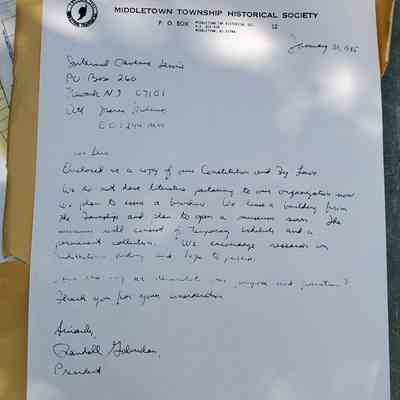 MIDDLETOWN TOWNSHIP HISTORICAL SOCIETY
P. O. BOX
January 31, 1985
Internal Revenue Service
PO Box 260
Newark NJ 07101
Enclosed is a copy of our Constitution and By Laws
We do not have literature pertaining to our organization now
we plan to issue a brochure. We lease a building from
the Township and plan to open a museum soon. The
museum will consist of temporary exhibits and a
permanent collection. We encourage research on
history and hope to
purpose and function?
Thank you for your consideration
Sincerely,
Randall
President